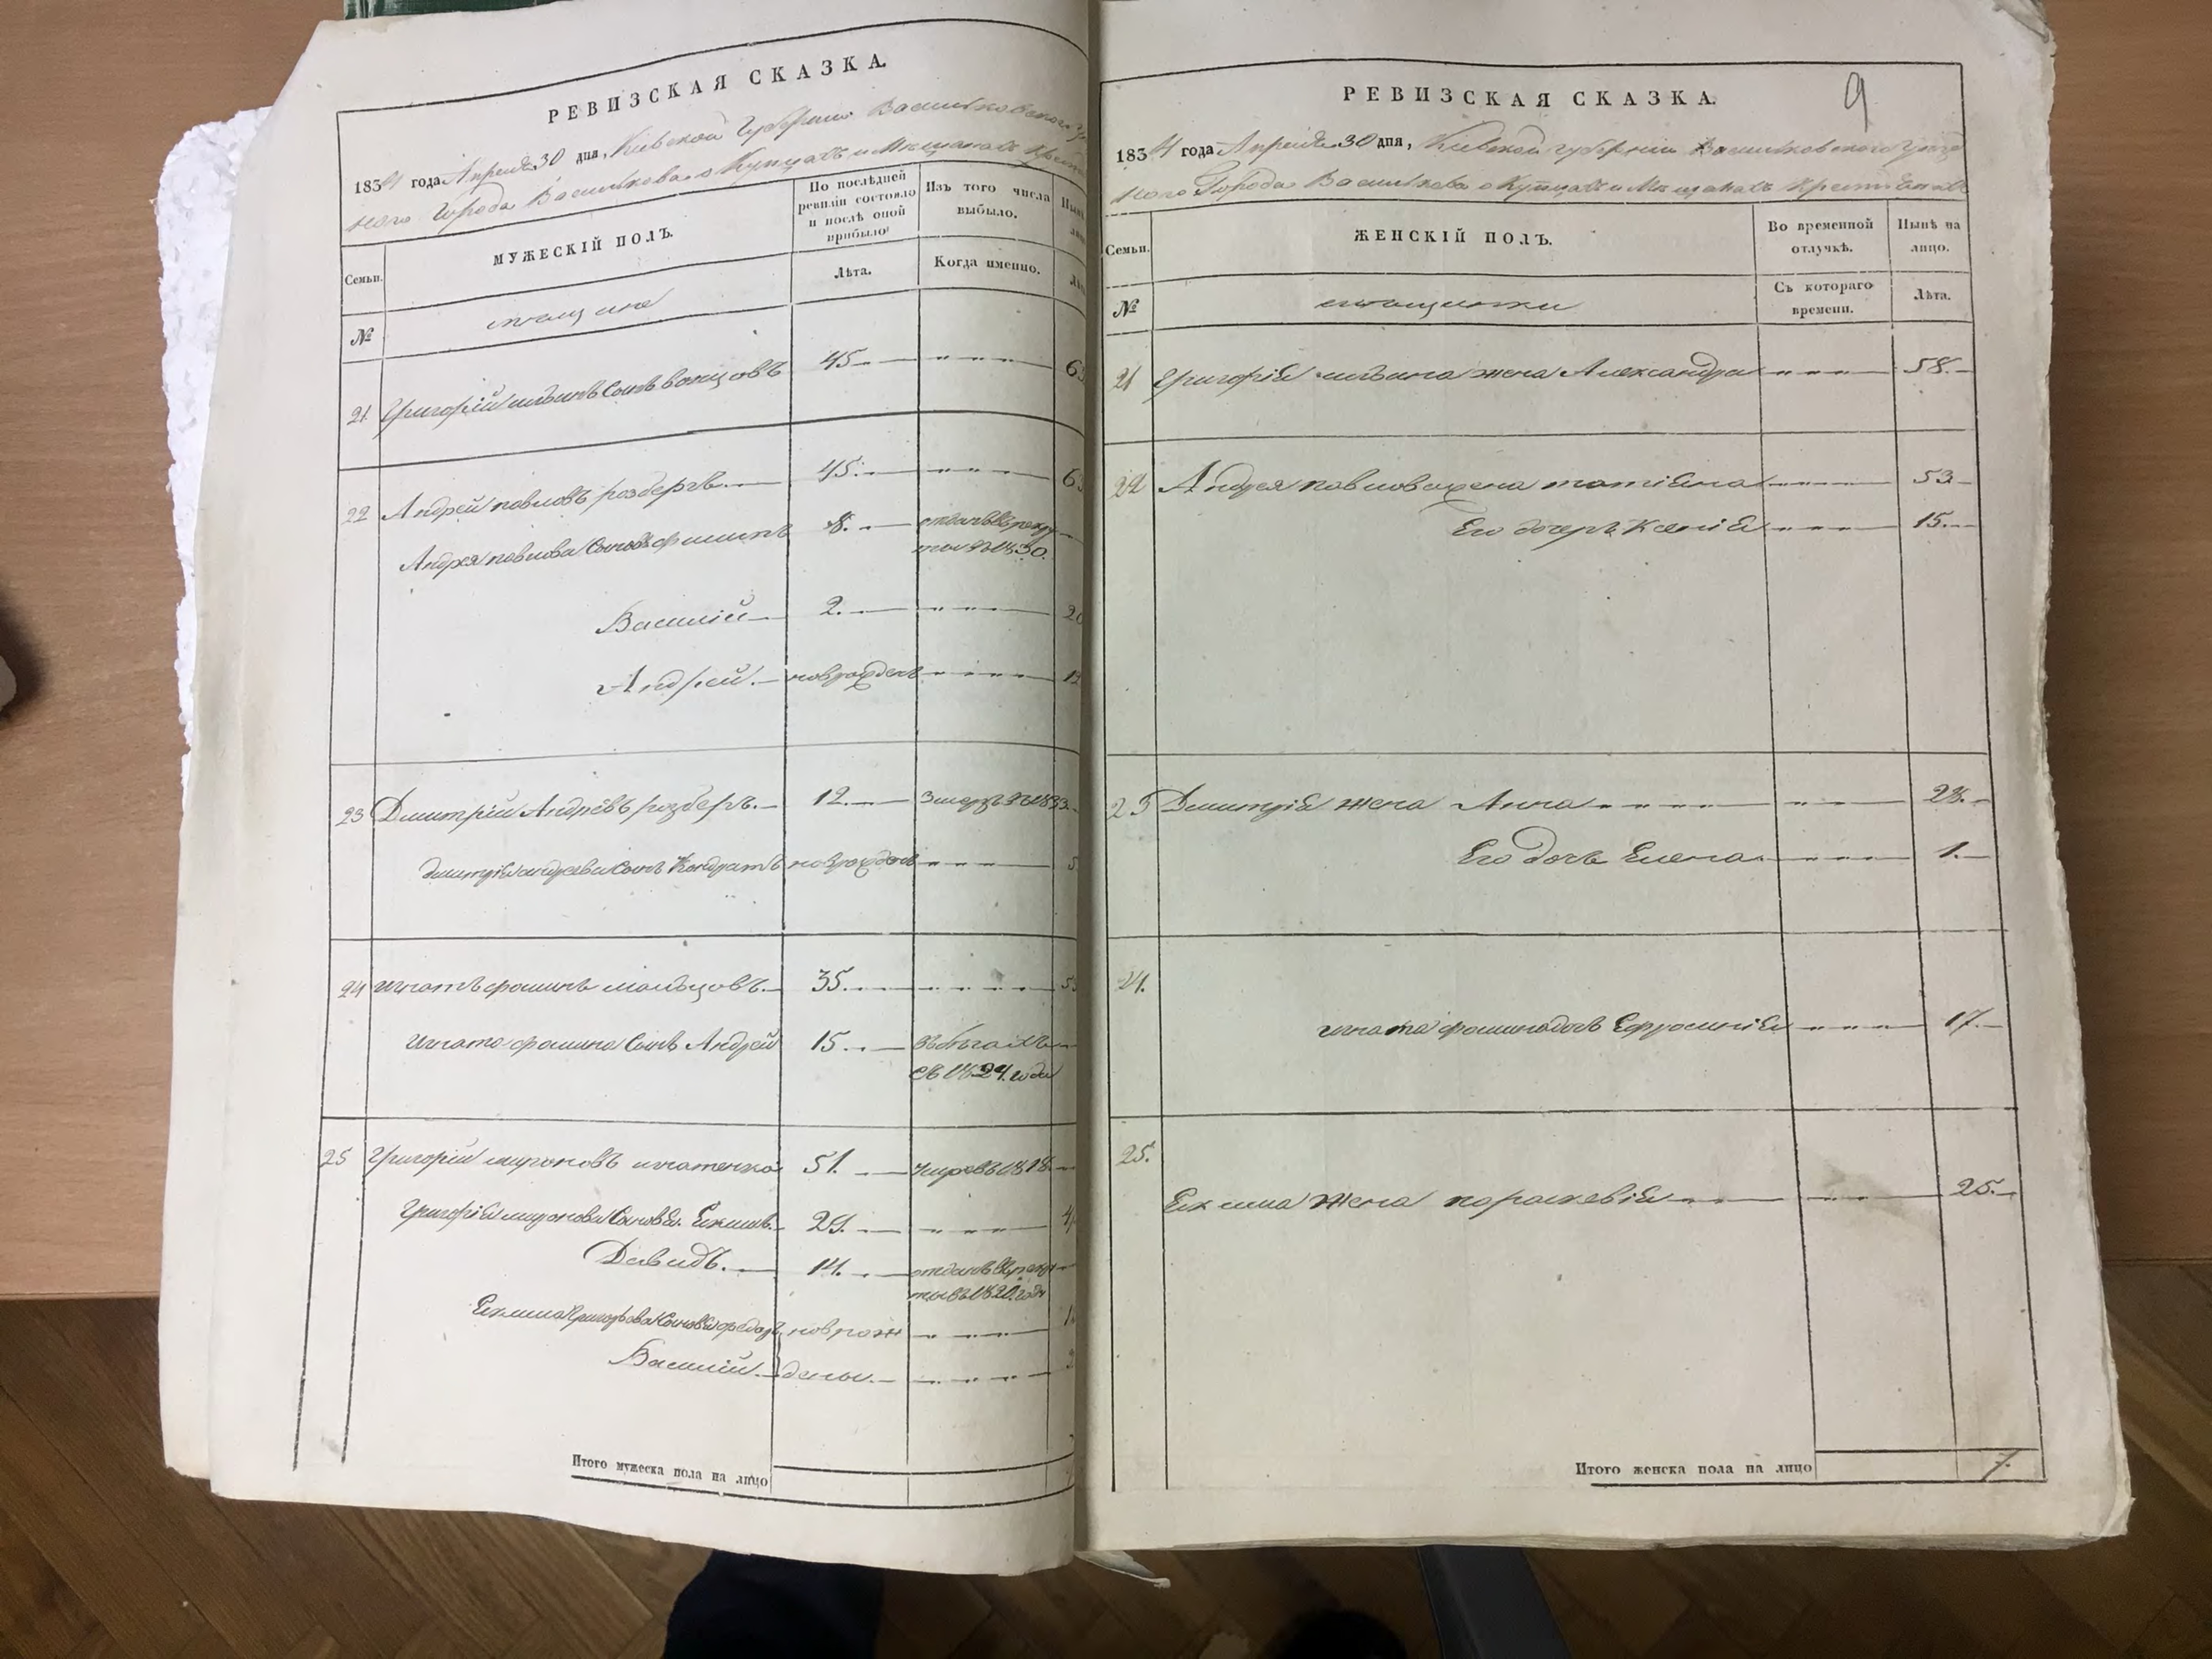 РЕВИЗСКАЯ СКАЗКА.
1834 года Апреля 30 дня, Кіевской Губерніи Васильковского
ного Города Василькова о Купцахъ и Мещанахъ
Семьи.
МУЖЕСКІЙ ПОЛЪ.
По послѣдней ревизіи состояло и послѣ оной прибыло
Изъ того числа выбыло.
№
Лѣта.
Когда именно.
мещане
21 Григорій ильинъ Сынъ 45
22 Андрей павловъ розбергъ 45.
Андрея павлова Сыновья филипъ 8. отданъ въ рекру
ты въ 1830.
Василій 2. 20
Андрей. новрожденъ
23 Дмитрій Андрѣевъ розберъ. 12. Змеръ въ 1833.
Дмитрія андреева Сынъ Кондратъ новрожденъ 5
24 игнатъ фоминъ мальцовъ. 35.
игната фомина Сынъ Андрей 15. въ бегахъ
съ 1824. года
25 Григорій мироновъ игнатенко 51. умре въ 1818
Григорія миронова Сыновья Екимъ. 29.
Давидъ. 14. отданъ въ рекру
ты въ 1820. годе
Екима Григорьева Сыновья федоръ новрож
Василій. дены.
Итого мужеска пола на лицо
РЕВИЗСКАЯ СКАЗКА.
9
1834 года Апреля 30 дня, Кіевской губерніи Васильковского Уезд
ного Города Василькова о Купцахъ и Мещанахъ Крестіянахъ
Семьи.
ЖЕНСКІЙ ПОЛЪ.
Во временной отлучкѣ.
Нынѣ на лицо.
№
Съ котораго времени.
Лѣта.
мещанки
21 Григорія ильина жена Александра 58.
22 Андрея павлова жена татіяна 53
Его дочерь Ксенія 15.
23 Дмитрія жена Анна 28.
Его дочь Елена 1.
24.
игната фомина дочь Ефросинія 17.
25.
Екима жена параскевія 25.
Итого женска пола на лицо 7.